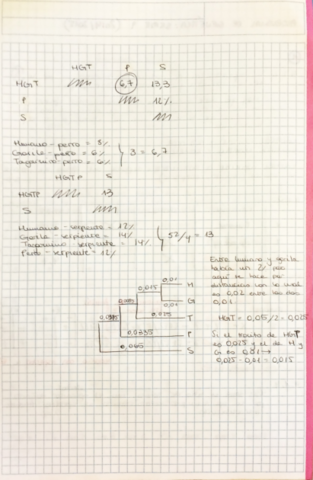 HGT P S
HGT 6,7 13,3
P 12%
S
Humano - perro = 8%
Gorila - perro = 6%
perro = 6%
3 = 6,7
HGTP S
HGTP 13
S
Humano - serpiente = 12%
Gorila - serpiente = 14%
serpiente = 14%
Perro - serpiente = 12%
52/4 = 13
Entre humano y gorila
había un 2% pero
aquí se hace por
distancia con lo cual
es 0,02 entre los dos
0,01
HGT = 0,05/2 = 0,025
Si el nodo de HGT
es 0,025 y el de H y
G es 0,01 →
0,025 - 0,01 = 0,015
0,01 H
0,015
0,01 G
0,025 T
0,0335 P
0,065 S